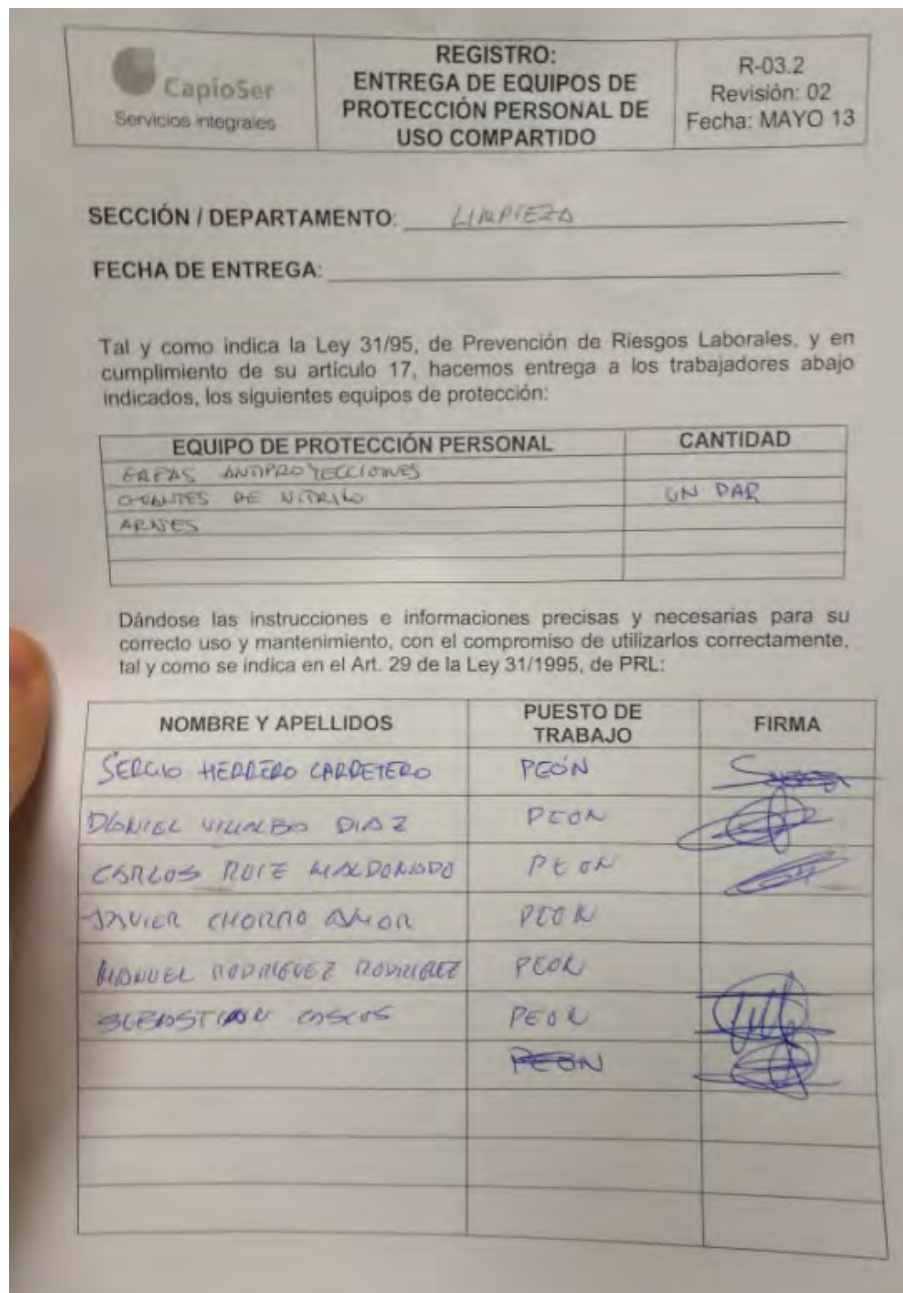 CapioSer
Servicios integrales
REGISTRO:
ENTREGA DE EQUIPOS DE
PROTECCIÓN PERSONAL DE
USO COMPARTIDO
R-03.2
Revisión: 02
Fecha: MAYO 13
SECCIÓN / DEPARTAMENTO: LIMPIEZA
FECHA DE ENTREGA:
Tal y como indica la Ley 31/95, de Prevención de Riesgos Laborales, y en
cumplimiento de su artículo 17, hacemos entrega a los trabajadores abajo
indicados, los siguientes equipos de protección:
EQUIPO DE PROTECCIÓN PERSONAL CANTIDAD
ANTIPROYECCIONES
GUANTES DE NITRILO UN PAR
ARNES
Dándose las instrucciones e informaciones precisas y necesarias para su
correcto uso y mantenimiento, con el compromiso de utilizarlos correctamente,
tal y como se indica en el Art. 29 de la Ley 31/1995, de PRL:
NOMBRE Y APELLIDOS PUESTO DE TRABAJO FIRMA
SERGIO HERRERO CARRETERO PEÓN
DANIEL VILLALBA DIAZ PEON
CARLOS RUIZ MALDONADO PEON
JAVIER CHORRO AMOR PEON
MANUEL RODRIGUEZ RODRIGUEZ PEON
SEBASTIAN COSCOS PEON
PEON